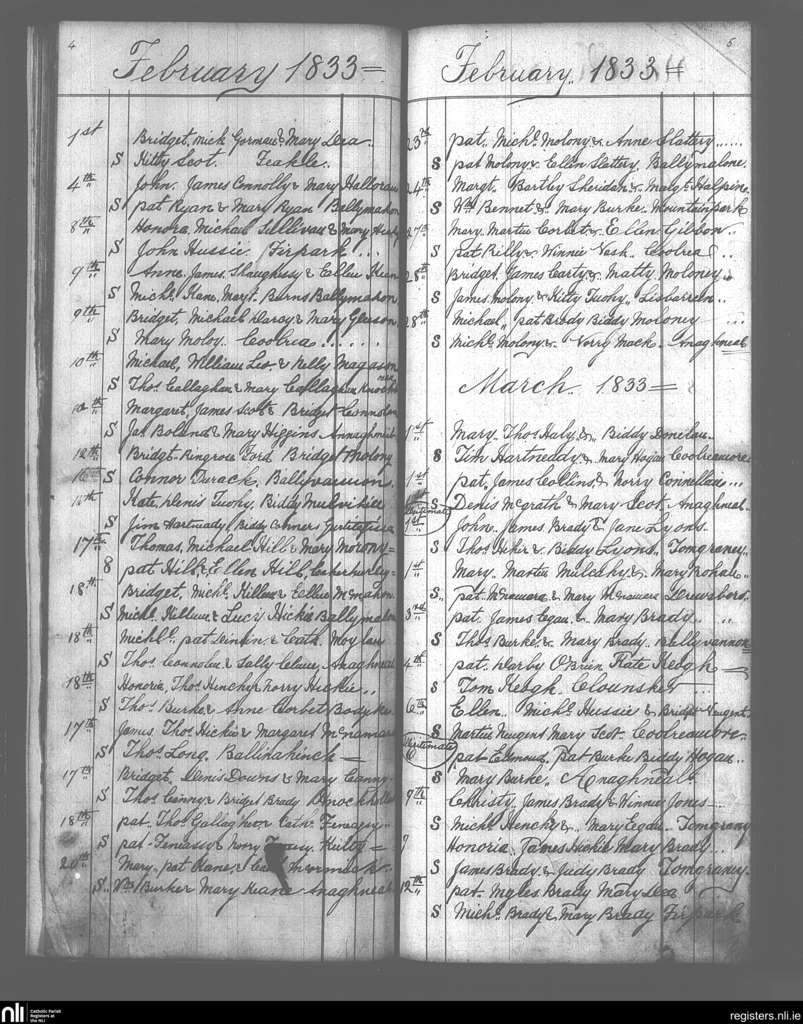 4
February 1833
1st Bridget, Mick Gorman & Mary Dea.
S Kitty Scot. Feakle.
4th John. James Connolly & Mary Halloran
S pat Ryan & Mary Ryan Ballymahon
8th Honora, Michael Sullivan & Mary
S John Hussie. Firpark
9th Anne, James, Shaughnessy & Ellen
S Michl. Kane, Margt. Burns Ballymahon
9th Bridget, Michael Darcy & Mary Gleeson
S Mary Moloy. Coolrea
10th Michael, William Lee & Nelly
S Thos. Callaghan & Mary Callaghan
10th Margaret, James Scot & Bridget
S Jas. Boland & Mary Higgins
12th Bridgt. Ringrose Ford Bridget Molony
S Connor Durack, Ballyvannon
Kate, Denis Tuohy, Biddy Mulvihill
S Jim Hartnady, Biddy Conners
17th Thomas, Michael Hill & Mary Morony
S pat Hill, Ellen Hill,
18th Bridget, Michl. Hillem & Ellen McMahon
S Michl. Hillem & Lucy Hickie Ballymahon
18th Michl. pat & Cath. Moylan
S Thos. & Sally Anaghneal
18th Honoria, Thos. Henchy & Norry Hickie
S Thos. Burke & Anne Corbet Bodyke
17th James, Thos. Hickie & Margaret McNamara
S Thos. Long. Ballinahinch
17th Bridget, Denis Downs & Mary Canny
S Thos. Canny & Bridget Brady
18th pat. Thos. Gallagher & Cathr.
S pat & Norry
20th Mary, pat Kane & McCormack
S Wm. Burke & Mary Keane Anaghneal
5
February. 1833
23rd pat. Michl. Molony & Anne Slattery
S pat Molony & Ellen Slattery. Ballymalone.
24th Margt. Bartly Sheridan & Margt. Halpine
S Wm. Bennet & Mary Burke. Mountainpark
27th Mary. Martin Corbet & Ellen Gibbon
S pat Rilly & Winnie Nash. Coolrea
28th Bridget. James Carty & Matty Moloney
S James Molony & Kitty Tuohy. Lisbarreen
28th Michael, pat Brody Biddy Moloney
S Michl. Molony & Norry Mack. Anaghneal
March. 1833
1st Mary. Thos Haly & Biddy Donellan
S Tim Hartneddy & Mary Hogan Coolreamore
1st pat. James Collins & Norry Connellan
S Denis McGrath & Mary Scot. Anaghneal
Illegitimate
1st John. James Brady & Jane Lyons.
S Thos & Biddy Lyons. Tomgraney.
1st Mary. Martin Mulcahy & Mary Bohan
S pat. McNamara & Mary McNamara Drewsboro.
3rd pat. James Egan & Mary Brady
S Thos Burke & Mary Brady. Ballyvannon
4th pat. Darby O'Brien Kate Keogh
S Tom Keogh. Clounsker
6th Ellen. Michl Hussie & Bridget Nugent.
S Martin Nugent Mary Scot. Coolreaubre
Illegitimate
pat Edmond, Pat Burke Biddy Hogan
S Mary Burke. Anaghneal
7th Christy. James Brady & Winnie Jones
S Michl. Henchy & Mary Egan Tomgrany
9 Honoria. James Hickie Mary Brady
S James Brady & Judy Brady Tomgraney.
12th pat. Myles Brady Mary Dea
S Michl. Brady & Mary Brady Firpark
nli
Catholic Parish
Registers at
the NLI
registers.nli.ie